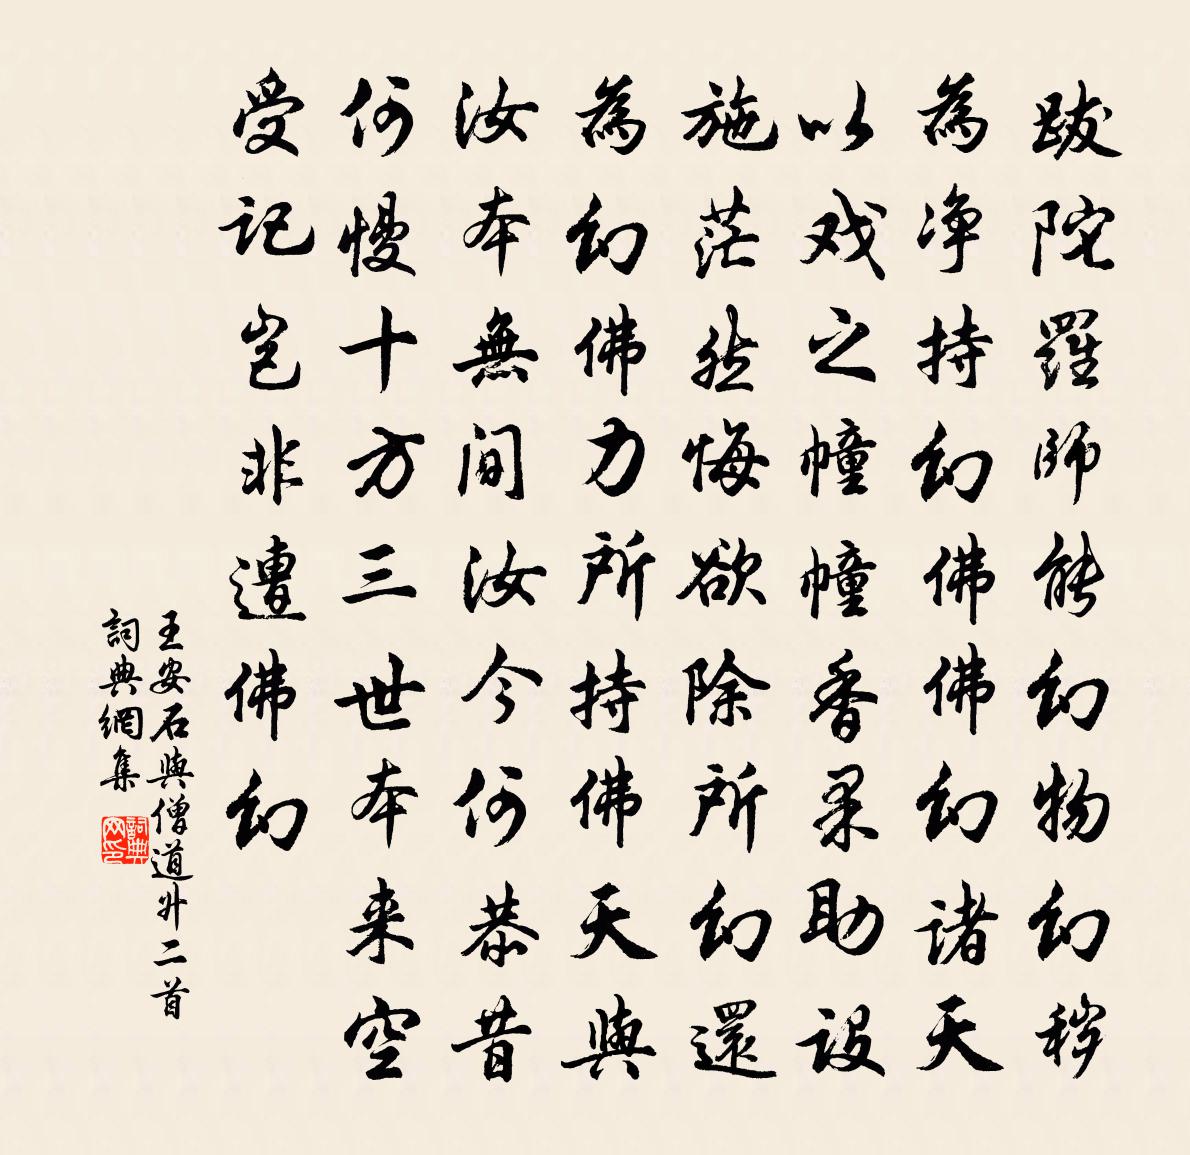 跋陀羅師能幻物幻秽
為净持幻佛佛幻諸天
以戏之幢幢香果助設
施茫然悔欲除所幻還
為幻佛力所持佛天與
汝本無間汝今何恭昔
何慢十方三世本来空
受記豈非遭佛幻
王安石與僧道升二首
詞典網集
詞典
网印